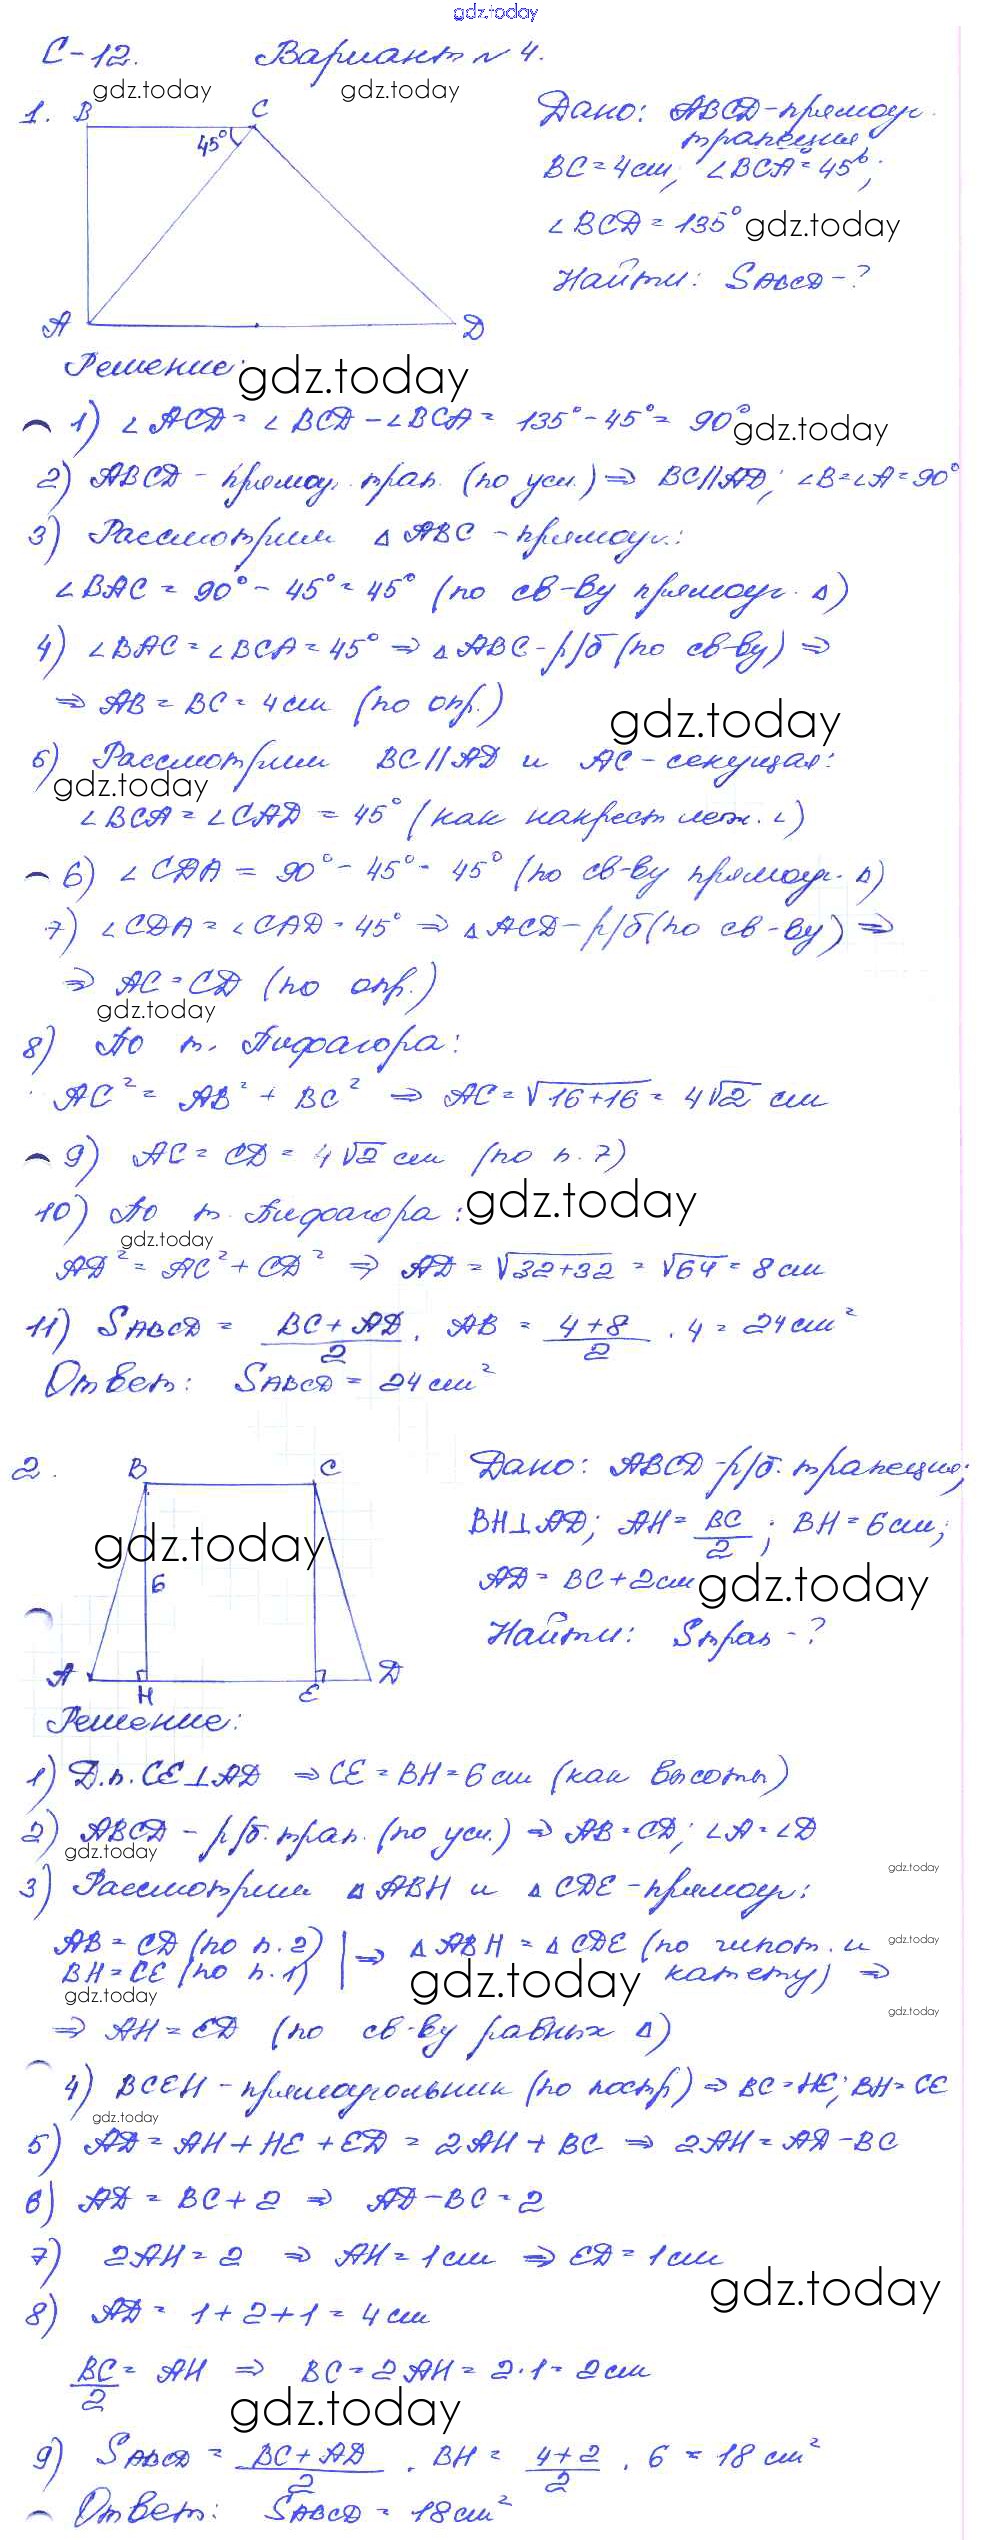 gdz.today
С-12. Вариант №4.
gdz.today gdz.today
1. B C
45°
A D
Дано: ABCD-прямоуг.
трапеция
BC = 4см; ∠BCA = 45°;
∠BCD = 135° gdz.today
Найти: SABCD - ?
Решение: gdz.today
1) ∠ACD = ∠BCD - ∠BCA = 135° - 45° = 90° gdz.today
2) ABCD - прямоуг. трап. (по усл.) ⇒ BC||AD; ∠B = ∠A = 90°
3) Рассмотрим △ABC - прямоуг.:
∠BAC = 90° - 45° = 45° (по св-ву прямоуг. △)
4) ∠BAC = ∠BCA = 45° ⇒ △ABC - р/б (по св-ву) ⇒
⇒ AB = BC = 4см (по опр.) gdz.today
5) Рассмотрим BC||AD и AC - секущая:
gdz.today
∠BCA = ∠CAD = 45° (как накрест леж. ∠)
6) ∠CDA = 90° - 45° = 45° (по св-ву прямоуг. △)
7) ∠CDA = ∠CAD = 45° ⇒ △ACD - р/б (по св-ву) ⇒
⇒ AC = CD (по опр.)
gdz.today
8) По т. Пифагора:
AC² = AB² + BC² ⇒ AC = √16+16 = 4√2 см
9) AC = CD = 4√2 см (по п. 7)
10) По т. Пифагора: gdz.today
gdz.today
AD² = AC² + CD² ⇒ AD = √32+32 = √64 = 8 см
11) SABCD = (BC + AD)/2 · AB = (4+8)/2 · 4 = 24 см²
Ответ: SABCD = 24 см²
2. B C
gdz.today
6
A H E D
Дано: ABCD - р/б. трапеция;
BH⊥AD; AH = BC/2; BH = 6см;
AD = BC + 2см gdz.today
Найти: Sтрап - ?
Решение:
1) Д.п. CE⊥AD ⇒ CE = BH = 6 см (как высоты)
2) ABCD - р/б. трап. (по усл.) ⇒ AB = CD; ∠A = ∠D
gdz.today
gdz.today
3) Рассмотрим △ABH и △CDE - прямоуг:
AB = CD (по п. 2) | ⇒ △ABH = △CDE (по гипот. и gdz.today
BH = CE (по п. 1) | gdz.today катету) ⇒
gdz.today
gdz.today
⇒ AH = ED (по св-ву равных △)
4) BCEH - прямоугольник (по постр) ⇒ BC = HE; BH = CE
gdz.today
5) AD = AH + HE + ED = 2AH + BC ⇒ 2AH = AD - BC
6) AD = BC + 2 ⇒ AD - BC = 2
7) 2AH = 2 ⇒ AH = 1см ⇒ ED = 1см
gdz.today
8) AD = 1 + 2 + 1 = 4 см
BC/2 = AH ⇒ BC = 2AH = 2·1 = 2см
gdz.today
9) SABCD = (BC + AD)/2 · BH = (4+2)/2 · 6 = 18 см²
Ответ: SABCD = 18 см²